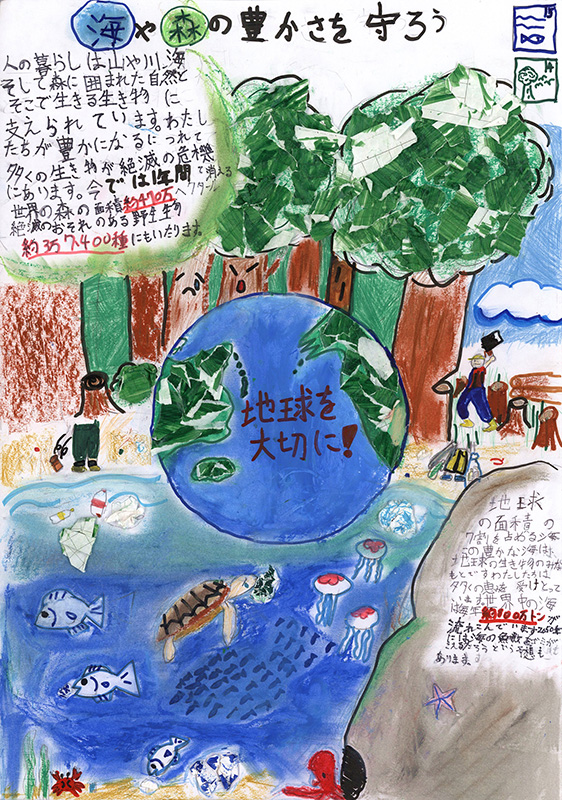 海や森の豊かさを守ろう
15
14
人の暮らしは山や川、海
そして森に囲まれた自然と
そこで生きる生き物に
支えられています。わたし
たちが豊かになるにつれて
多くの生き物が絶滅の危機
にあります。今では1年間で消える
世界の森の面積約470万ヘクタール
絶滅のおそれのある野生生物
約357,400種にもいたります。
地球を
大切に!
地球
の面積の
7割を占める海
この豊かな海は、
地球の生き物のみな
もとですわたしたちは
多くの恵を受けとって
います世界中の海
は毎年約800万トンが
流れこんでいます2050年
には海の魚数
だろうという予想も
あります